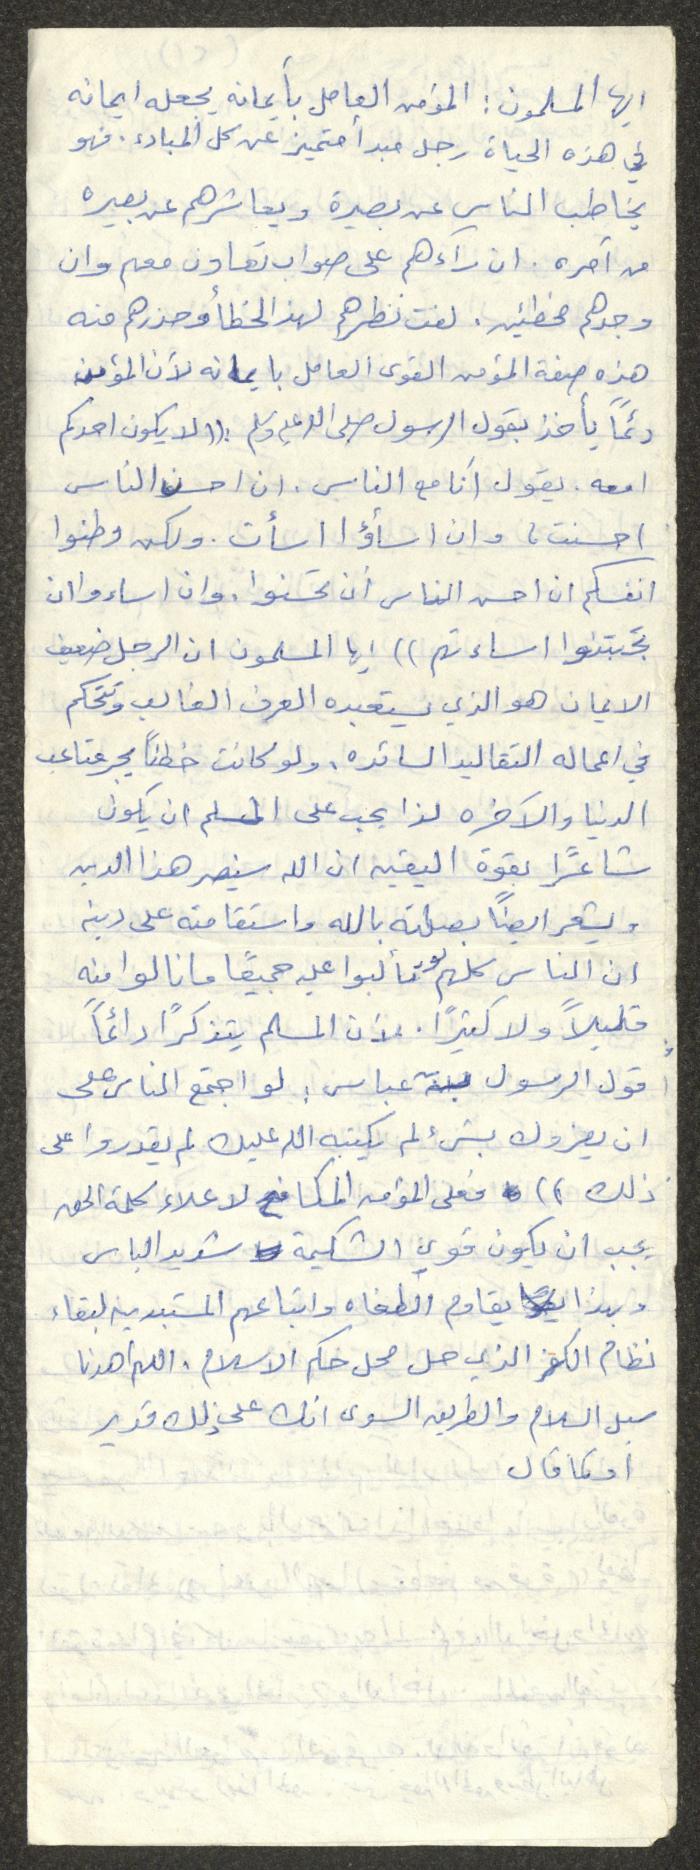 ايها المسلمون: المؤمن العامل بأيمانه يجعله ايمانه
في هذه الحياة رجل مبدأ متميز عن كل المبادء. فهو
يخاطب الناس عن بصيرة ويعاشرهم عن بصيره
من أمره. ان رآءهم على صواب تعاون معهم وان
وجدهم مخطئين. لفت نظرهم لهذ الخطأ وحذرهم منه
هذه صفة المؤمن القوى العامل بايمانه لأن المؤمن
دئماً يأخذ بقول الرسول صلى الله عليه وسلم :(( لا يكون احدكم
امعه. يقول أنا مع الناس. ان احسن الناس
احسنت، وان اسأؤا اسأت. ولكن وطنوا
انفسكم ان احسن الناس أن تحسنوا. وان اساءوا ان
تجتنبوا اساءتهم)) ايها المسلمون ان الرجل ضعيف
الايمان هو الذي يستعبده العرف الغالب وتتحكم
في اعماله التقاليد السائده، ولو كانت خطئاً يجر متاعب
الدنيا والآخره لذا يجب على المسلم ان يكون
شاعرًا بقوة اليقين ان الله سينصر هذا الدين
ويشعر ايضًا بصلته بالله واستقامته على دينه
ان الناس كلهم لو تألبوا عليه جميعًا ما نالوا منه
قليلاً ولا كثيرًا. لأن المسلم يتذكرًا دائماً
قول الرسول لابن عباس: لو اجتمع الناس على
ان يضروك بشئ لم يكتبه الله عليك لم يقدروا على
ذلك )) فعلى المؤمن المكافح لاعلاء كلمة الحق
يجب ان يكون قوي الشكيمة شديد الباس
وبهذا يقاوم الطغاه واتباعهم المستبدين لبقاء
نظام الكفر الذي حل محل حكم الاسلام. اللهم أهدنا
سبل السلام والطريق السوى انك على ذلك قدير
او كما قال